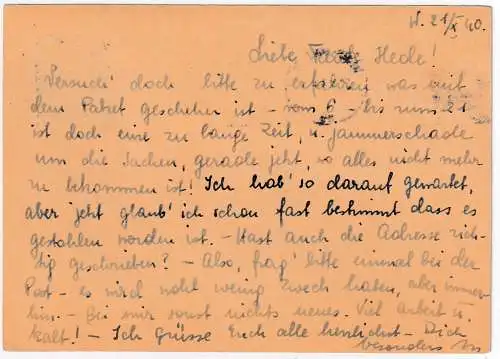 W. 21/X 40.
Liebe Hede!
Versuch' doch bitte zu erfahren was mit
dem Paket geschehen ist - vom 6 - bis zum 21
ist doch eine zu lange Zeit, u. jammerschade
um die Sachen, gerade jetzt, wo alles nicht mehr
zu bekommen ist! Ich hab' so darauf gewartet,
aber jetzt glaub' ich schon fast bestimmt dass es
gestohlen worden ist. - Hast auch die Adresse rich-
tig geschrieben? - Also, frag' bitte einmal bei der
Post - es wird wohl wenig Zweck haben, aber immer-
hin. - Bei mir sonst nichts neues. Viel Arbeit u.
kalt! - Ich grüsse Euch alle herzlichst - Dich
besonders